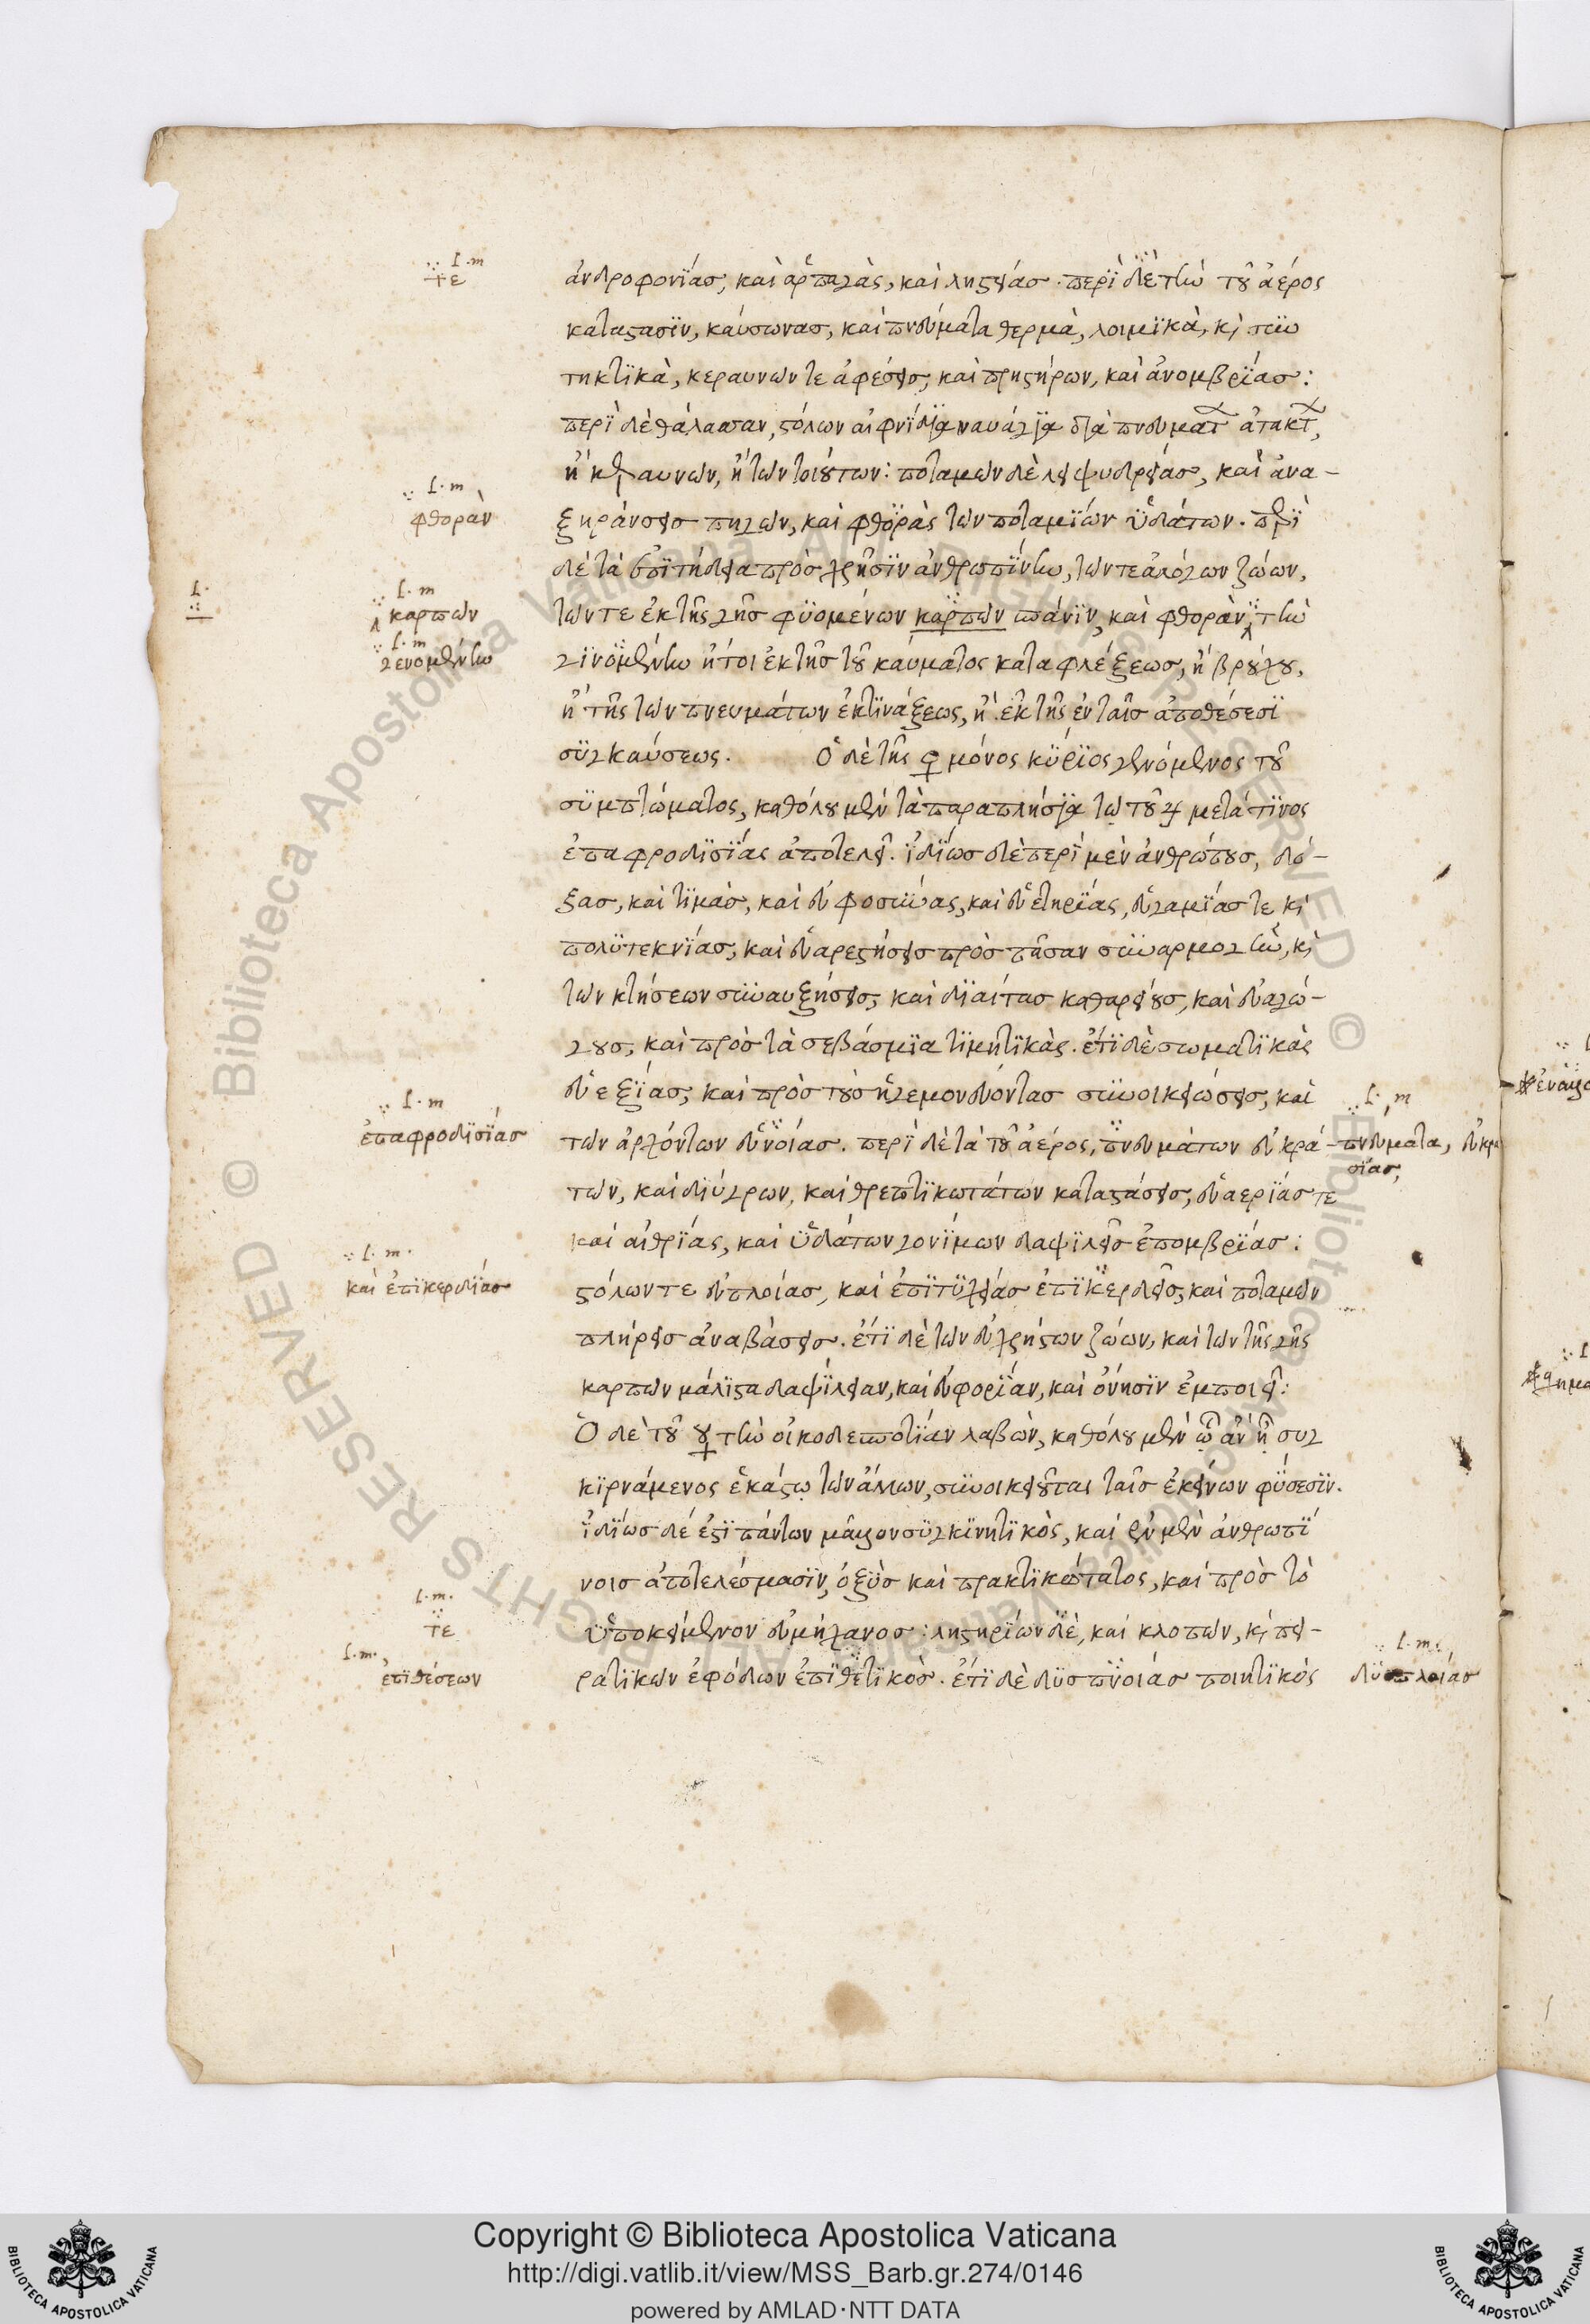 ἀνδροφονίας, καὶ ἁρπαγὰς, καὶ λῃστείας. περὶ δὲ τὴν τοῦ ἀέρος
κατάστασιν, καύσωνας, καὶ πνεύματα θερμὰ, λοιμικὰ, καὶ συν
τηκτικὰ, κεραυνῶν τε ἀφέσεις, καὶ πρηστήρων, καὶ ἀνομβρίας:
περὶ δὲ θάλασσαν, στόλων αἰφνίδια ναυάγια διὰ πνευμάτ ἀτάκτ,
ἢ κεραυνῶν, ἢ τῶν τοιούτων: ποταμῶν δὲ λειψυδρείας, καὶ ἀνα-
ξηράνσεις πηγῶν, καὶ φθορὰς τῶν ποταμίων ὑδάτων. περὶ
δὲ τὰ ἐπιτήδεια πρὸς χρῆσιν ἀνθρωπίνην, τῶν τε ἀλόγων ζώων,
τῶν τε ἐκ τῆς γῆς φυομένων καρπῶν σπάνιν, καὶ φθορὰν τὴν
γινομένην ἤτοι ἐκ τῆς τοῦ καύματος καταφλέξεως, ἢ βρούχου,
ἢ τῆς τῶν πνευμάτων ἐκτινάξεως, ἢ ἐκ τῆς ἐν ταῖς ἀποθέσεσι
συγκαύσεως. Ὁ δὲ τῆς ♀ μόνος κύριος γενόμενος τοῦ
συμπτώματος, καθόλου μὲν τὰ παραπλήσια τῷ τοῦ ♃ μετά τινος
ἐπαφροδισίας ἀποτελεῖ. ἰδίως δὲ περὶ μὲν ἀνθρώπους, δό-
ξας, καὶ τιμὰς, καὶ εὐφροσύνας, καὶ εὐετηρίας, εὐγαμίας τε καὶ
πολυτεκνίας, καὶ εὐαρεστήσεις πρὸς πᾶσαν συναρμογὴν, καὶ
τῶν κτήσεων συναυξήσεις, καὶ διαίτας καθαρείους, καὶ εὐαγώ-
γους, καὶ πρὸς τὰ σεβάσμια τιμητικὰς. ἔτι δὲ σωματικὰς
εὐεξίας, καὶ πρὸς τοὺς ἡγεμονεύοντας συνοικειώσεις, καὶ
τῶν ἀρχόντων εὐνοίας. περὶ δὲ τὰ τοῦ ἀέρος, πνευμάτων εὐκρά-
των, καὶ διύγρων, καὶ θρεπτικωτάτων καταστάσεις, εὐαερίας τε
καὶ αἰθρίας, καὶ ὑδάτων γονίμων δαψιλεῖς ἐπομβρίας:
στόλων τε εὐπλοίας, καὶ ἐπιτυχείας ἐπικερδεῖς, καὶ ποταμῶν
πλήρεις ἀναβάσεις. ἔτι δὲ τῶν εὐχρήστων ζώων, καὶ τῶν τῆς γῆς
καρπῶν μάλιστα δαψίλειαν, καὶ εὐφορίαν, καὶ ὄνησιν ἐμποιεῖ:
Ὁ δὲ τοῦ ☿ τὴν οἰκοδεσποτίαν λαβὼν, καθόλου μὲν ᾧ ἂν ᾖ συγ
κιρνάμενος ἑκάστῳ τῶν ἄλλων, συνοικειοῦται ταῖς ἐκείνων φύσεσιν.
ἰδίως δέ ἐστι πάντων μᾶλλον συγκινητικὸς, καὶ ἐν μὲν ἀνθρωπί
νοις ἀποτελέσμασιν, ὀξὺς καὶ πρακτικώτατος, καὶ πρὸς τὸ
ὑποκείμενον εὐμήχανος: λῃστηρίων δὲ, καὶ κλοπῶν, καὶ πει-
ρατικῶν ἐφόδων ἐπιθετικὸς. ἔτι δὲ δυσπνοίας ποιητικὸς
l. m
τε
l. m
φθορὰν
l.
l. m
καρπῶν
l. m
γενομένην
l. m
ἐπαφροδισίας
l. m.
καὶ ἐπικερδίας
l. m.
τε
l. m.
ἐπιθέσεων
l. m
πνεύματα, εὐκρα
σίας,
l. m.
δυσπλοίας
Copyright © Biblioteca Apostolica Vaticana
http://digi.vatlib.it/view/MSS_Barb.gr.274/0146
powered by AMLAD·NTT DATA
BIBLIOTECA APOSTOLICA VATICANA
BIBLIOTECA APOSTOLICA VATICANA